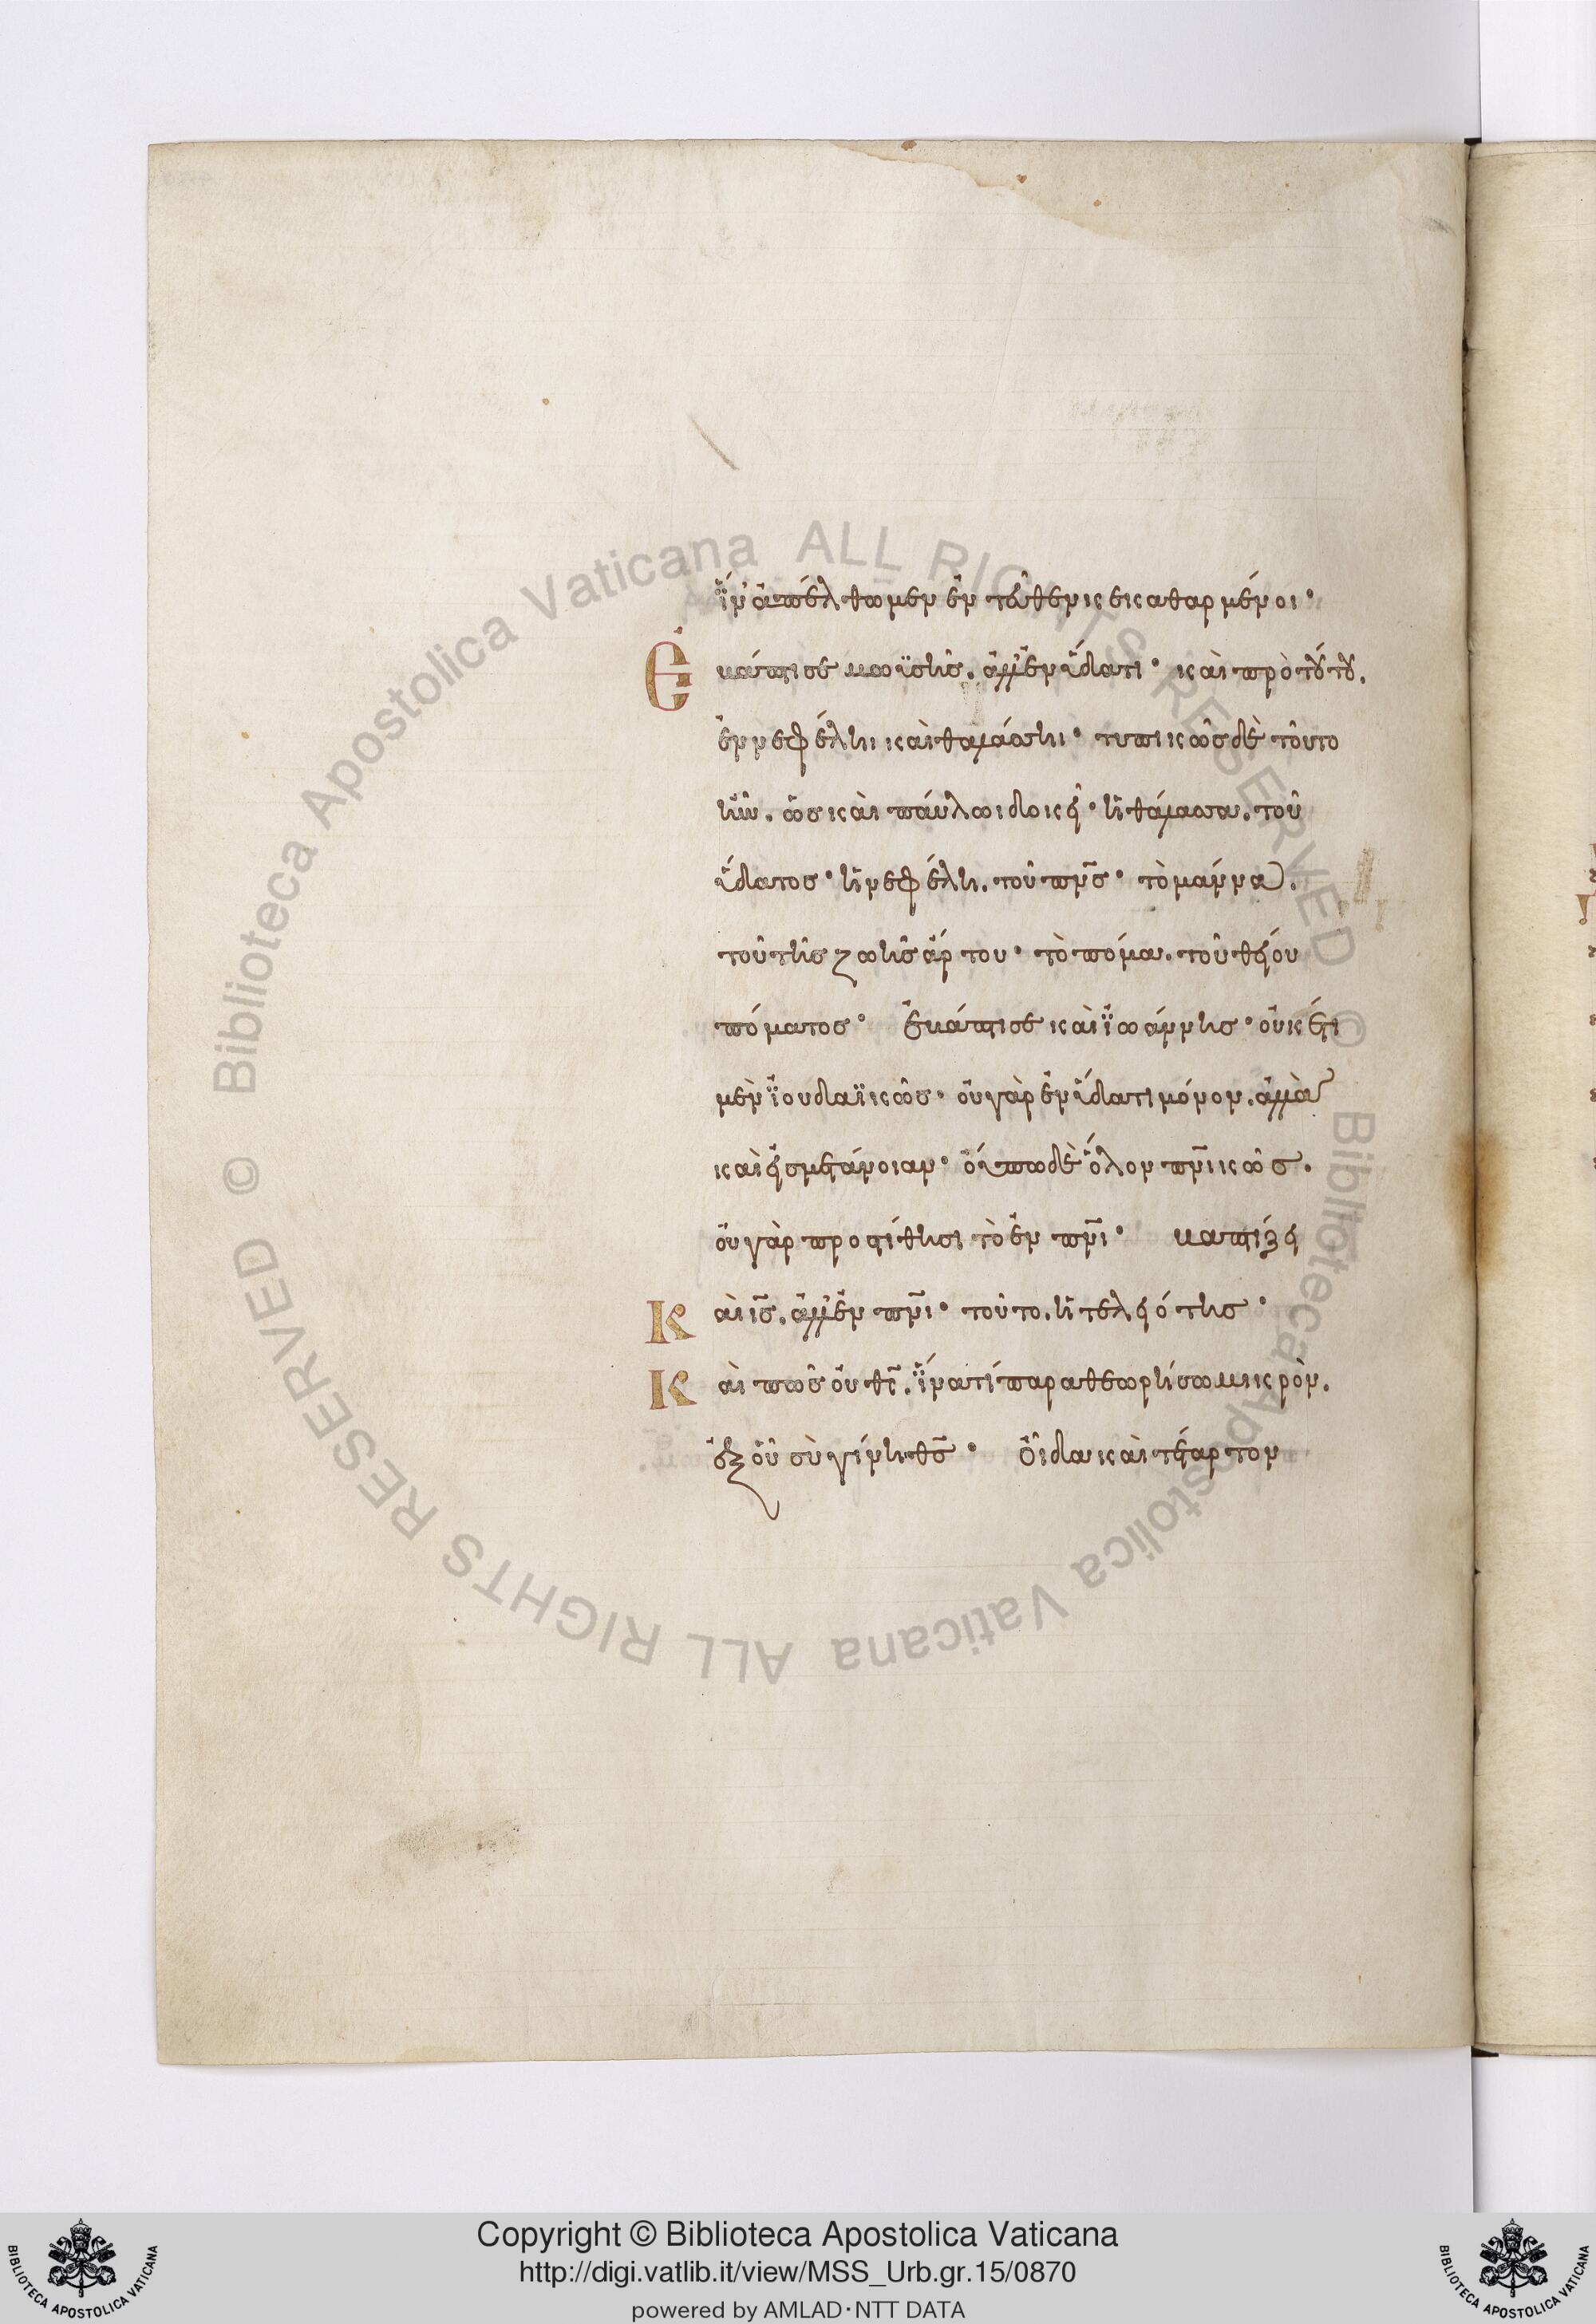 ἵν' ἀπέλθωμεν ἐντεῦθεν κεκαθαρμένοι·
Ἐβάπτισε μωϋσῆς. ἀλλ' ἐν ὕδατι· καὶ πρὸ τούτου.
ἐν νεφέλῃ καὶ θαλάσσῃ· τυπικῶς δὲ τοῦτο
ἦν. ὡς καὶ παύλωι δοκεῖ· ἡ θάλασσα. τοῦ
ὕδατος· ἡ νεφέλη. τοῦ πν̅ς· τὸ μάννα.
τοῦ τῆς ζωῆς ἄρτου· τὸ πόμα. τοῦ θείου
πόματος· Ἐβάπτισε καὶ ϊωάννης· οὐκέτι
μὲν ϊουδαϊκῶς· οὐ γὰρ ἐν ὕδατι μόνον. ἀλλὰ
καὶ εἰς μετάνοιαν· οὔπω δὲ ὅλον πν̅ικῶς.
οὐ γὰρ προστίθησι τὸ ἐν πν̅ι· βαπτίζει
Καὶ ι̅ς. ἀλλ' ἐν πν̅ι· τοῦτο. ἡ τελειότης·
Καὶ πῶς οὐ θ̅ς. ἵνα τί παραθεωρήσω μικρὸν.
ἐξ οὗ σὺ γίνῃ θ̅ς· Οἶδα καὶ τέταρτον
Copyright © Biblioteca Apostolica Vaticana
http://digi.vatlib.it/view/MSS_Urb.gr.15/0870
powered by AMLAD·NTT DATA
BIBLIOTECA APOSTOLICA VATICANA
BIBLIOTECA APOSTOLICA VATICANA
© Biblioteca Apostolica Vaticana ALL RIGHTS RESERVED © Biblioteca Apostolica Vaticana ALL RIGHTS RESERVED